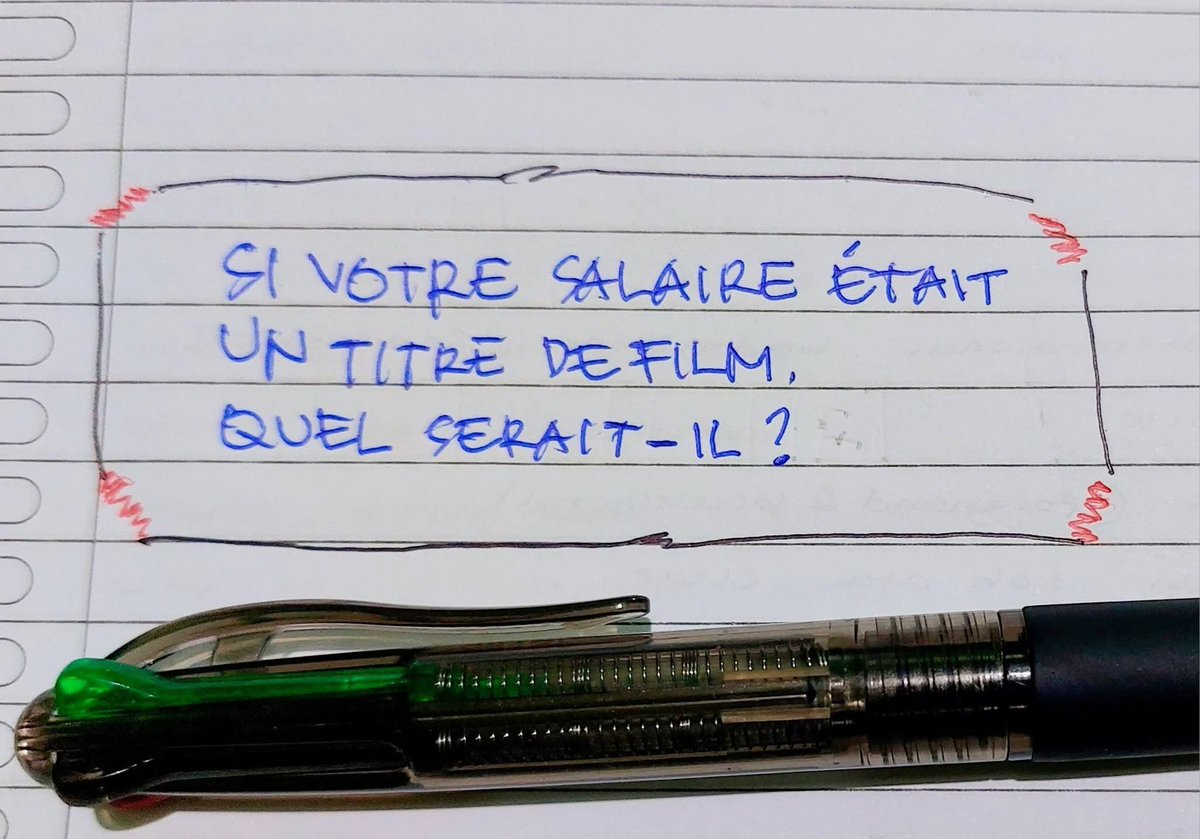 SI VOTRE SALAIRE ÉTAIT
UN TITRE DE FILM,
QUEL SERAIT-IL ?